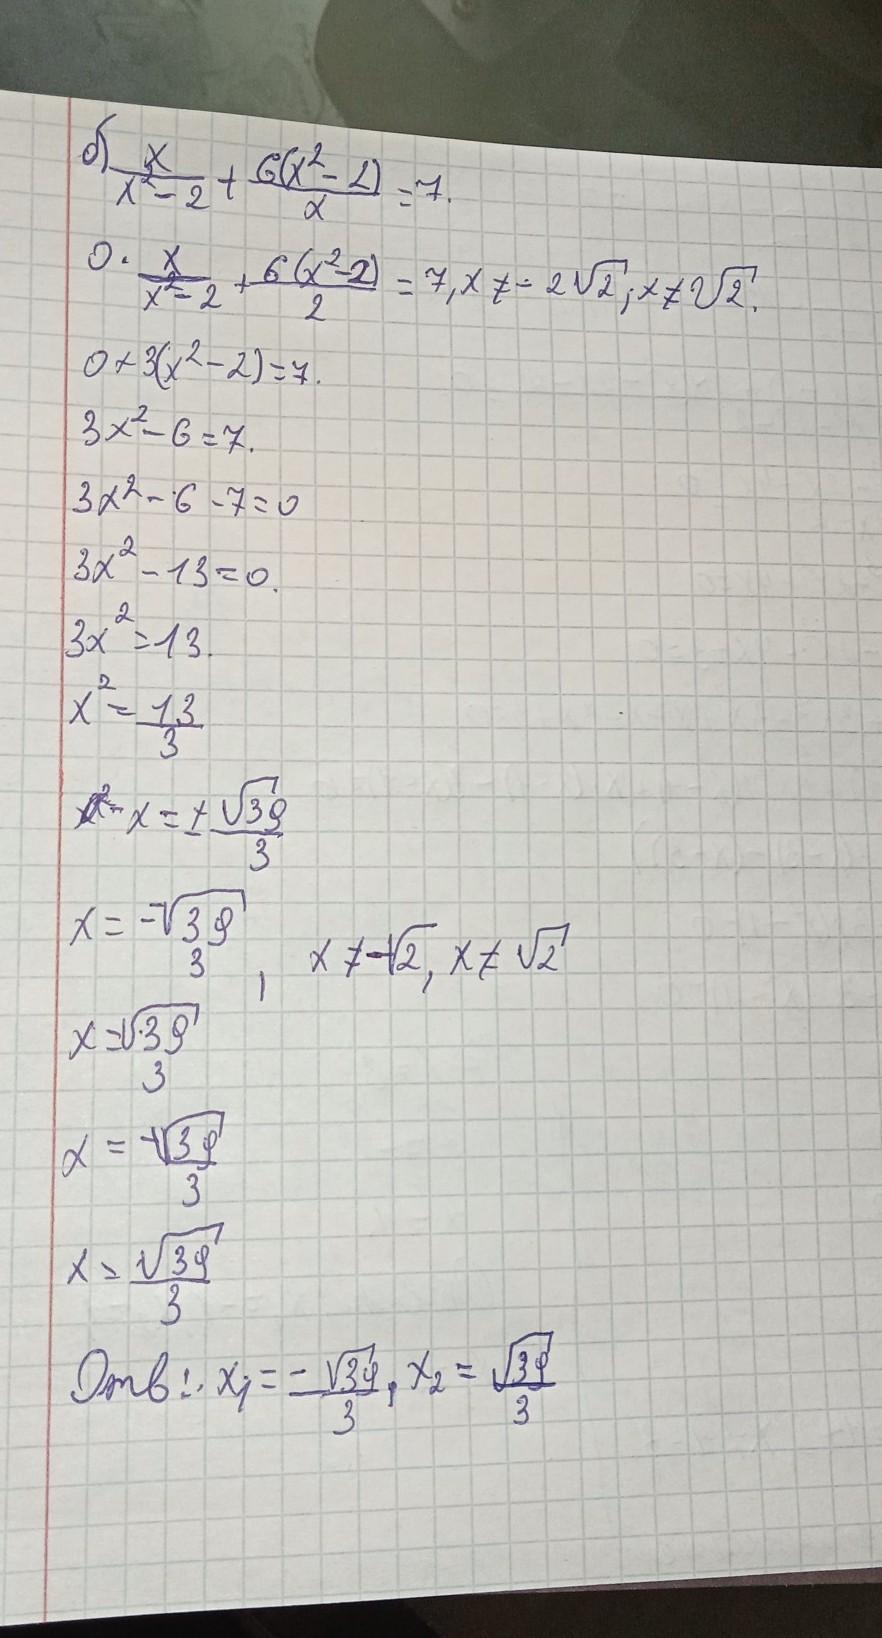 б) x/(x²-2) + 6(x²-2)/x = 7.
0 · x/(x²-2) + 6(x²-2)/2 = 7, x ≠ -2√2; x ≠ 2√2.
0 + 3(x²-2) = 7.
3x² - 6 = 7.
3x² - 6 - 7 = 0
3x² - 13 = 0.
3x² = 13.
x² = 13/3
x = ± √39/3
x = -√39/3, x ≠ -√2, x ≠ √2
x = √39/3
x = -√39/3
x = √39/3
Отв:. x₁ = -√39/3, x₂ = √39/3